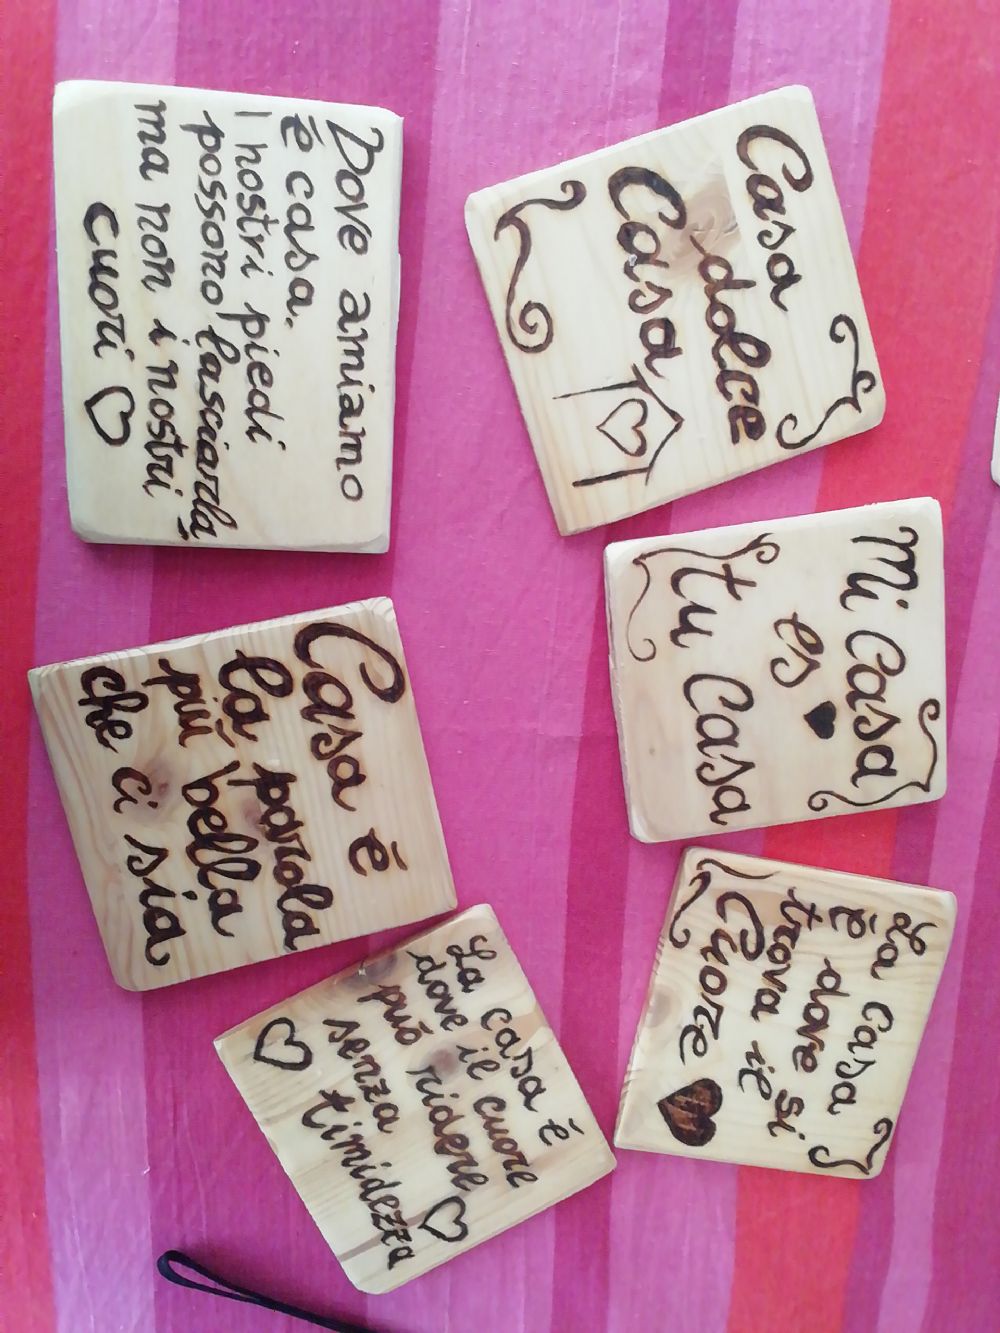 Casa
dolce
Casa
Mi Casa
es
tu Casa
La casa
è dove si
trova il
Cuore
Dove amiamo
è casa.
I nostri piedi
possono lasciarla
ma non i nostri
cuori
Casa è
la parola
più bella
che ci sia
La casa è
dove il cuore
può ridere
senza
timidezza